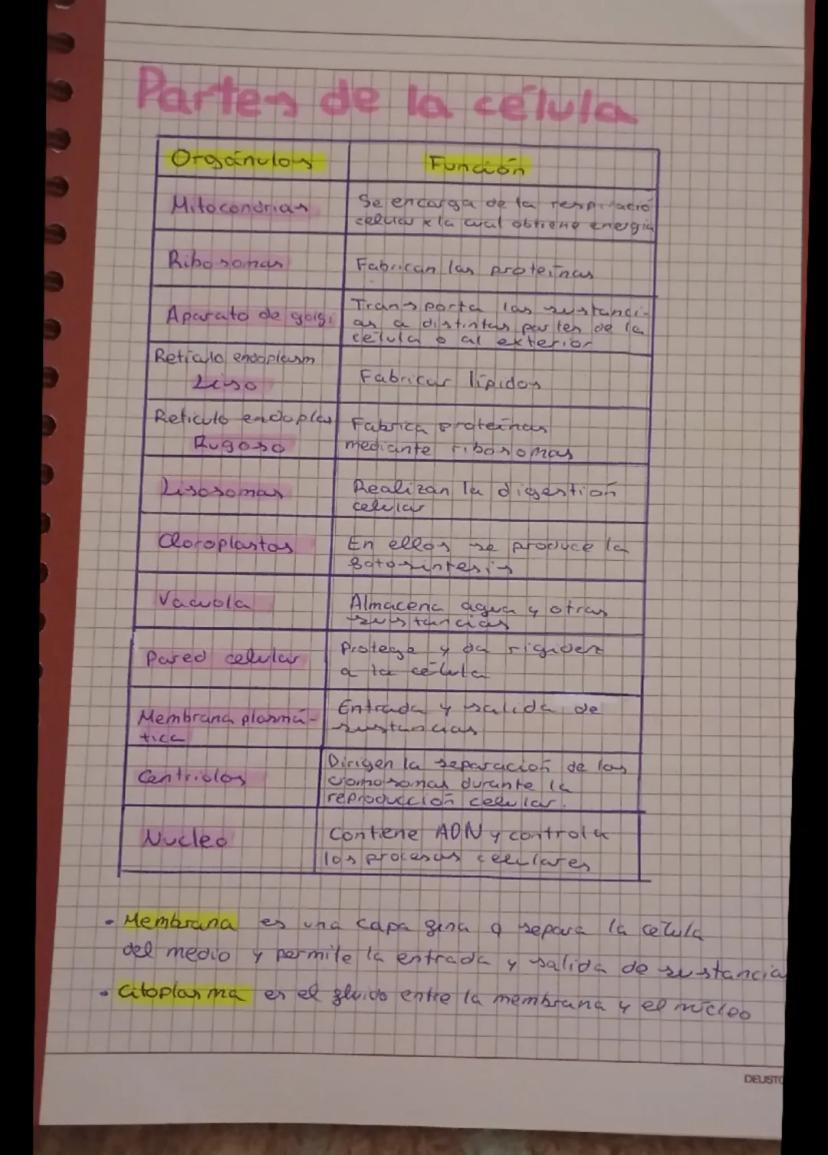 Partes de la célula
Orgánulos
Función
Mitocondrias
Se encarga de la respiració
celular x la cual obtiene energía
Ribosomas
Fabrican las proteínas
Aparato de golgi
Transporta las sustanci-
as a distintas partes de la
célula o al exterior
Reticulo endoplasm
Liso
Fabricar lípidos
Reticulo endoplas
Rugoso
Fabrica proteínas
mediante ribosomas
Lisosomas
Realizan la digestión
celular
Cloroplastos
En ellos se produce la
fotosíntesis
Vacuola
Almacena agua y otras
sustancias
Pared celular
Protege y da rigidez
a la célula
Membrana plasmá-
tica
Entrada y salida de
sustancias
Centriolos
Dirigen la separación de los
cromosomas durante la
reproducción celular.
Nucleo
Contiene ADN y controla
los procesos celulares
• Membrana es una capa fina q separa la célula
del medio y permite la entrada y salida de sustancia
• Citoplasma es el fluido entre la membrana y el núcleo
DEUSTO